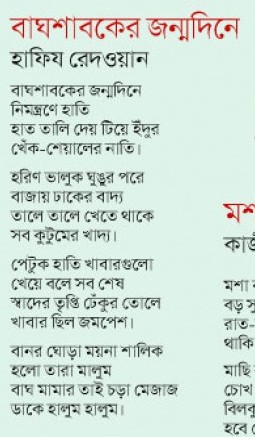 বাঘশাবকের জন্মদিনে
হাফিয রেদওয়ান
বাঘশাবকের জন্মদিনে
নিমন্ত্রণে হাতি
হাত তালি দেয় টিয়ে ইঁদুর
খেঁক-শেয়ালের নাতি।
হরিণ ভালুক ঘুঙুর পরে
বাজায় ঢাকের বাদ্য
তালে তালে খেতে থাকে
সব কুটুমের খাদ্য।
পেটুক হাতি খাবারগুলো
খেয়ে বলে সব শেষ
স্বাদের তৃপ্তি ঢেঁকুর তোলে
খাবার ছিল জমপেশ।
বানর ঘোড়া ময়না শালিক
হলো তারা মালুম
বাঘ মামার তাই চড়া মেজাজ
ডাকে হালুম হালুম।
মশ
মশা
বড় সু
রাত-
থাকি
মাছি
চোখ
বিলকু
হবে